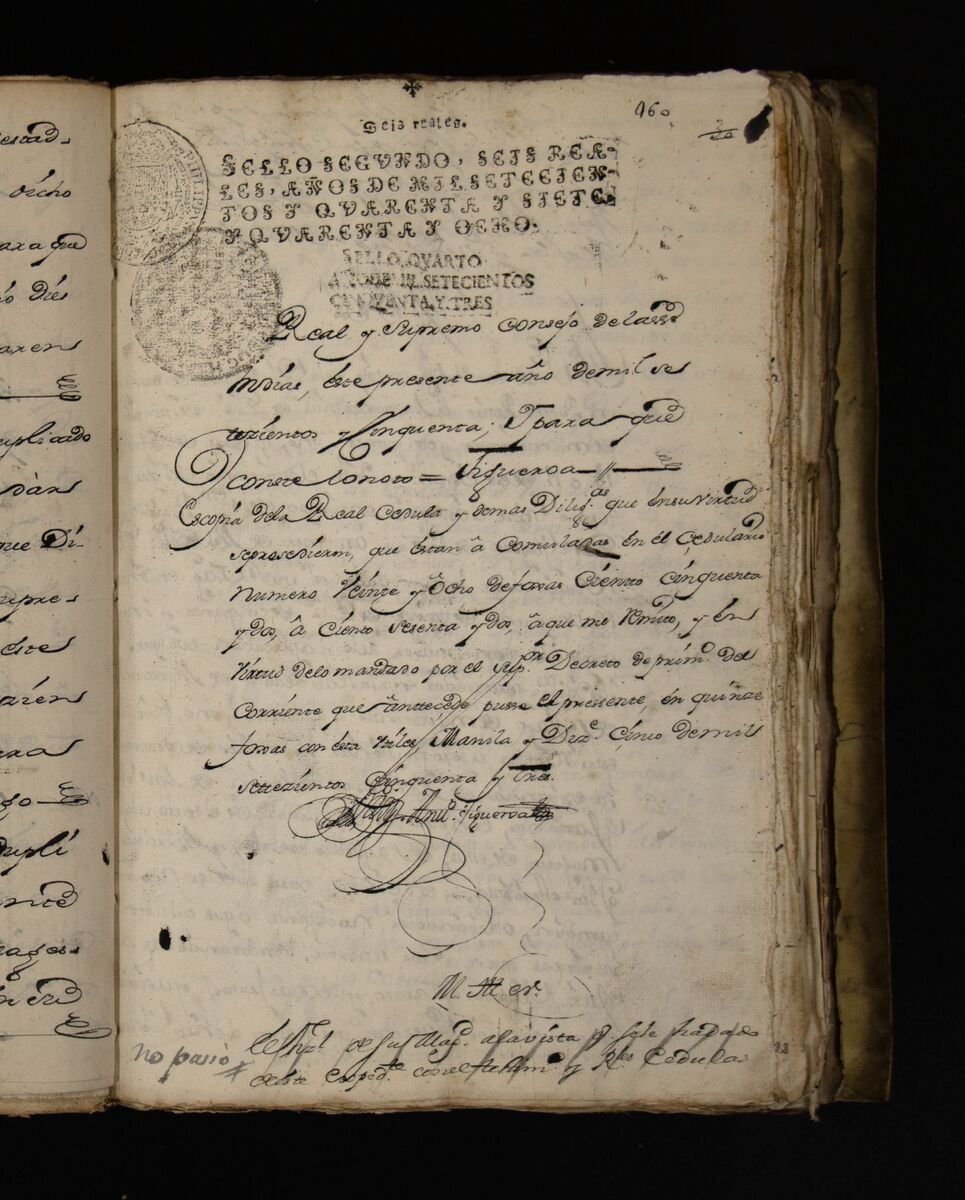 estad-
dicho
para que
dies
plicado
que Di-
este
160
20
Seis reales.
SELLO SEGVNDO, SEIS REA-
LES, AÑOS DE MIL SETECIEN-
TOS Y QVARENTA Y SIETE
Y QVARENTA Y OCHO.
PHILIPPV
SELLO QVARTO
AÑO DE MIL SETECIENTOS
CINQVENTA Y TRES
Real y Supremo Consejo delas
Indias, este presente año demil se
tezientos y Cinquenta; Y para que
conste lo noto = Figueroa
Es copia dela Real Cedula y demas Dilig.as que en su virtud
seprosedieron, que están â Comuladas en el Cedulario
Numero Veinte y Ocho defoxas Ciento Cinquenta
y dos, â Ciento Sesenta y dos, âque me Remito, y en
Virtud delo mandado por el Sup.or Decreto de prim.o del
Corriente que antecede pusse el presente, en quinze
foxas con esta Utiles, Manila y Diz.e Cinco demil
settezientos Cinquenta y tres.
Ant.o Figueroa
M. M. er.
el fhal de su Mag.d ala vista
deste Exped.te con el y R.s Cedulas
no pasó